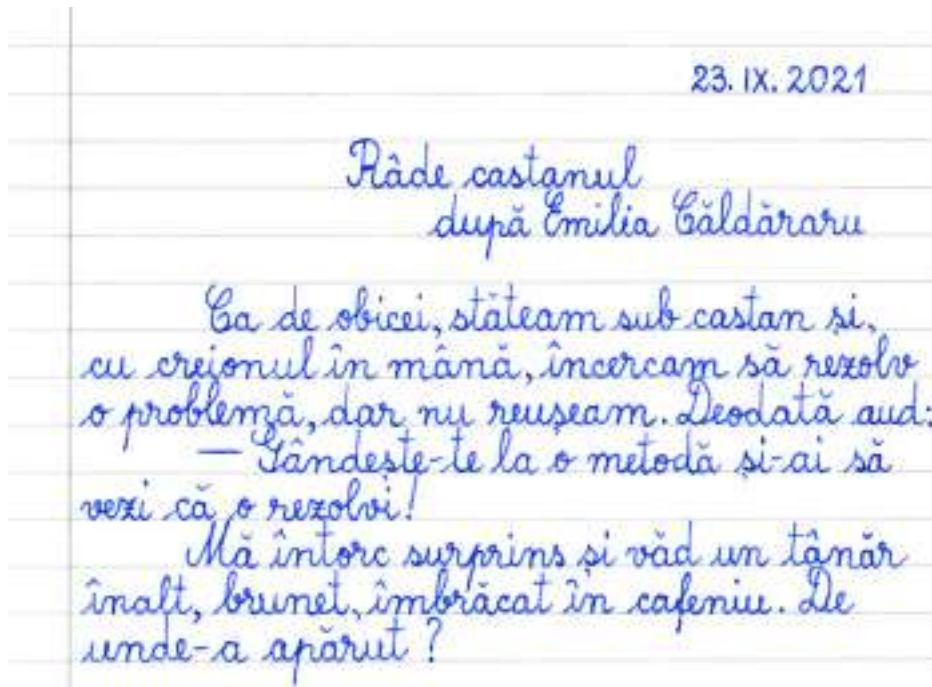 23. IX. 2021
Râde castanul
după Emilia Căldăraru
Ca de obicei, stăteam sub castan și,
cu creionul în mână, încercam să rezolv
o problemă, dar nu reușeam. Deodată aud:
— Gândește-te la o metodă și-ai să
vezi că o rezolvi!
Mă întorc surprins și văd un tânăr
înalt, brunet, îmbrăcat în cafeniu. De
unde-a apărut?